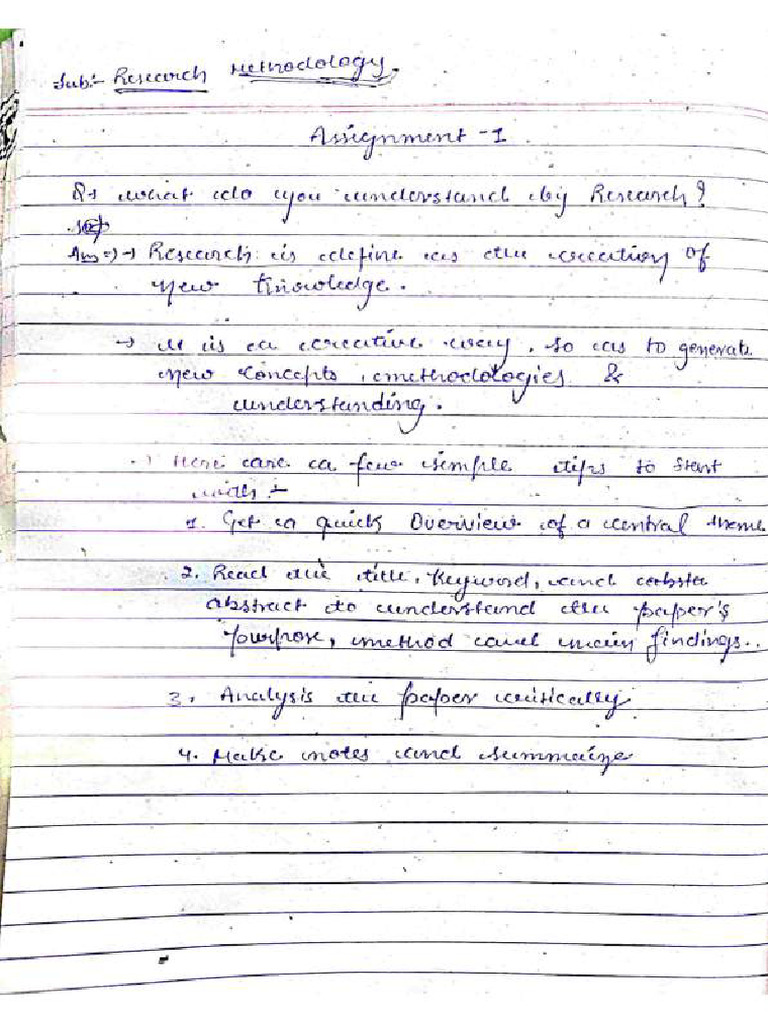 Sub:- Research Methodology.
Assignment - 1
Q1 what do you understand by Research?
Ans => → Research is define as the creation of
new knowledge.
→ it is a creative way, so as to generate
new concepts, methodologies &
understanding.
Here are a few simple steps to start
with :-
1. Get a quick Overview of a central theme
2. Read the title, Keyword, and
abstract to understand the paper's
purpose, method and main findings..
3. Analysis the paper critically
4. Make notes and summaize